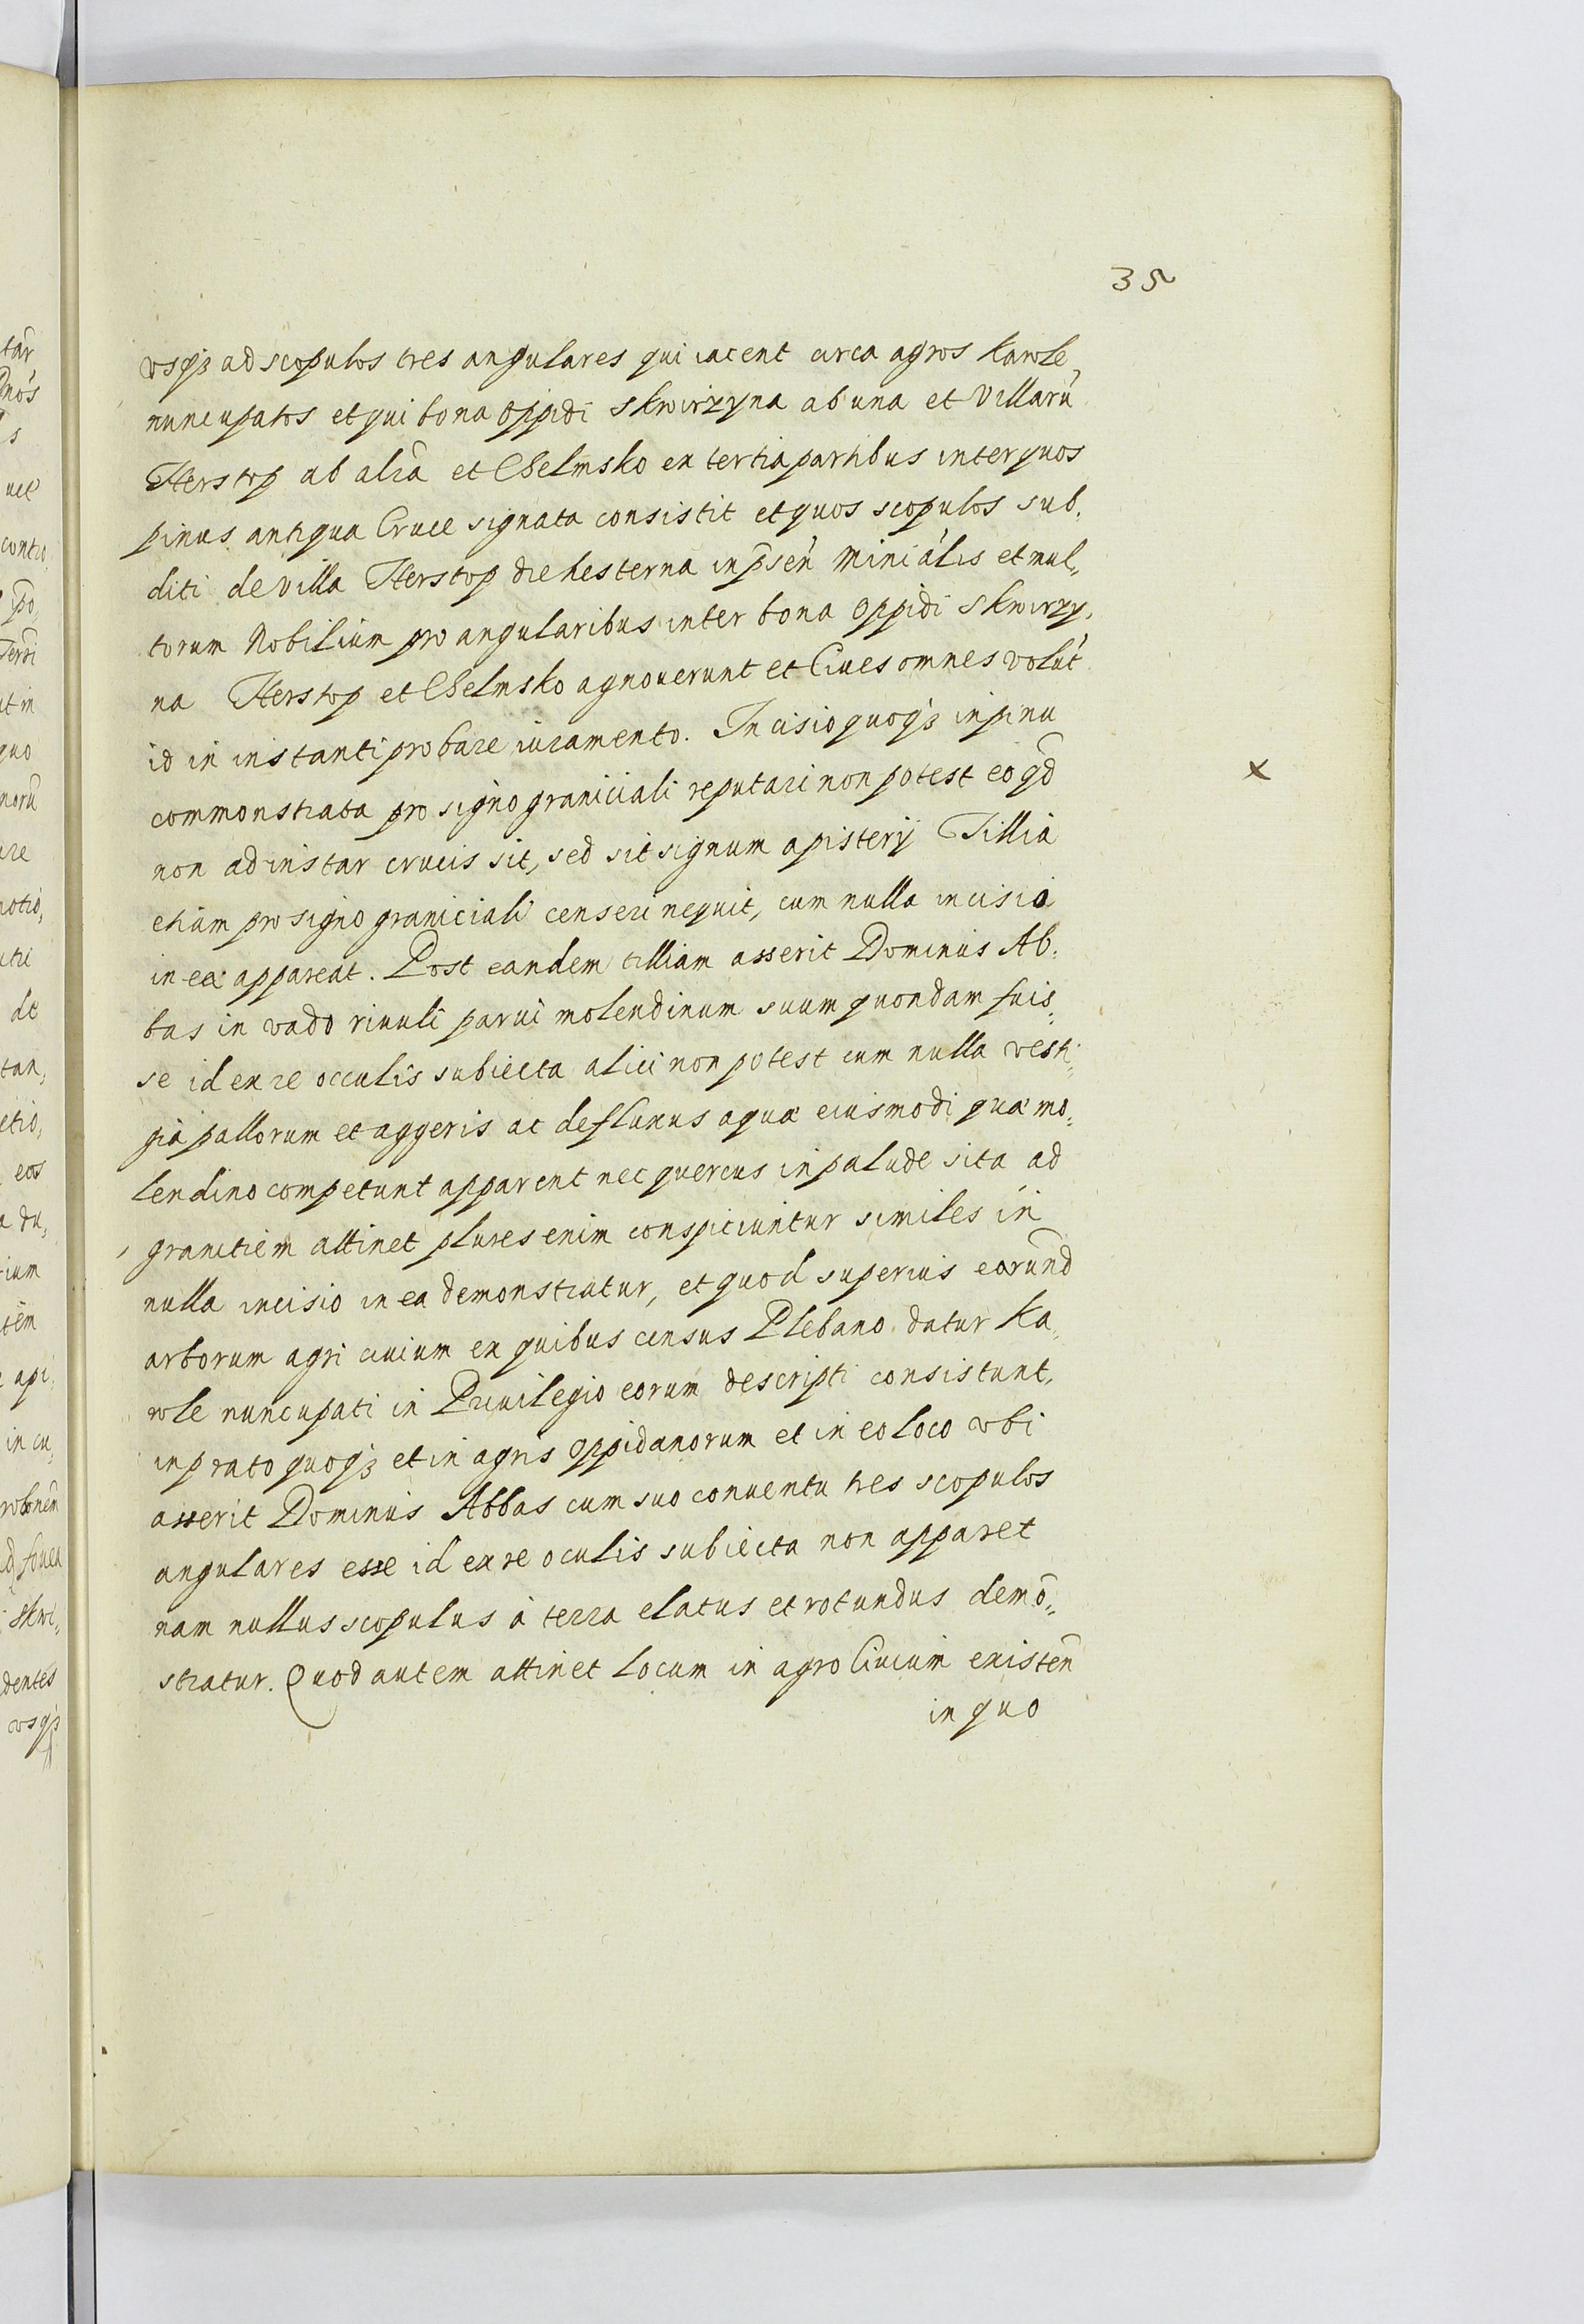 35
vsq3 ad scopulos tres angulares qui iacent circa agros Karole,
nuncupatos et qui bona oppidi Skwirzyna ab una et Villarũ
Hersztop ab alia et Chelmsko ex tertia partibus inter quos
pinus antiqua Cruce signata consistit et quos scopulos sub,
diti de villa Herstop die hesterna in pn̄sen Miniālis et mul,
torum Nobilium pro angularibus inter bona oppidi Skwirzy,
na Herstop et Chelmsko agnouerunt et Ciues omnes volūt
id in instanti probare iuramento. Incisio quoq3 in pinu
commonstrata pro signo graniciali reputari non potest eo qd̄
x
non ad instar crucis sit, sed sit signum apisterij Tillia
etiam pro signo graniciali censeri nequit, cum nulla incisio
in ea appareat. Post eandem tilliam asserit Dominus Ab,
bas in vado riuuli parui molendinum suum quondam fuis,
se id ex re occulis subiecta alici non potest cum nulla vesti,
gia pallorum et aggeris ac defluxus aquæ eiusmodi quæ mo,
lendino competunt apparent nec quercus in palude sita ad
granitiem attinet plures enim conspiciuntur similes in
nulla incisio in ea demonstratur, et quod superius eorund̄
arborum agri ciuium ex quibus census Plebano datur Ka,
role nuncupati in Priuilegio eorum descripti consistunt,
in prato quoq3 et in agris oppidanorum et in eo loco vbi
asserit Dominus Abbas cum suo conuentu tres scopulos
angulares esse id ex re oculis subiecta non apparet
nam nullus scopulus à terra elatus et rotundus demō,,
stratur. Quod autem attinet locum in agro Ciuium existen̄
in quo